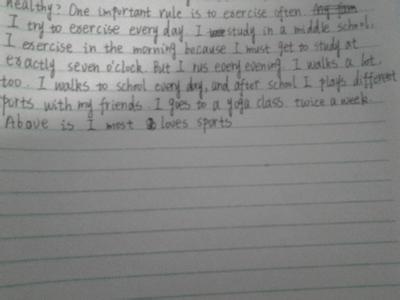 healthy? One important rule is to exercise often.
I try to exercise every day. I study in a middle school.
I exercise in the morning because I must get to study at
exactly seven o'clock. But I rus every evening. I walks a lot,
too. I walks to school every day, and after school I plays different
ports with my friends. I goes to a yoga class twice a week.
Above is I most loves sports